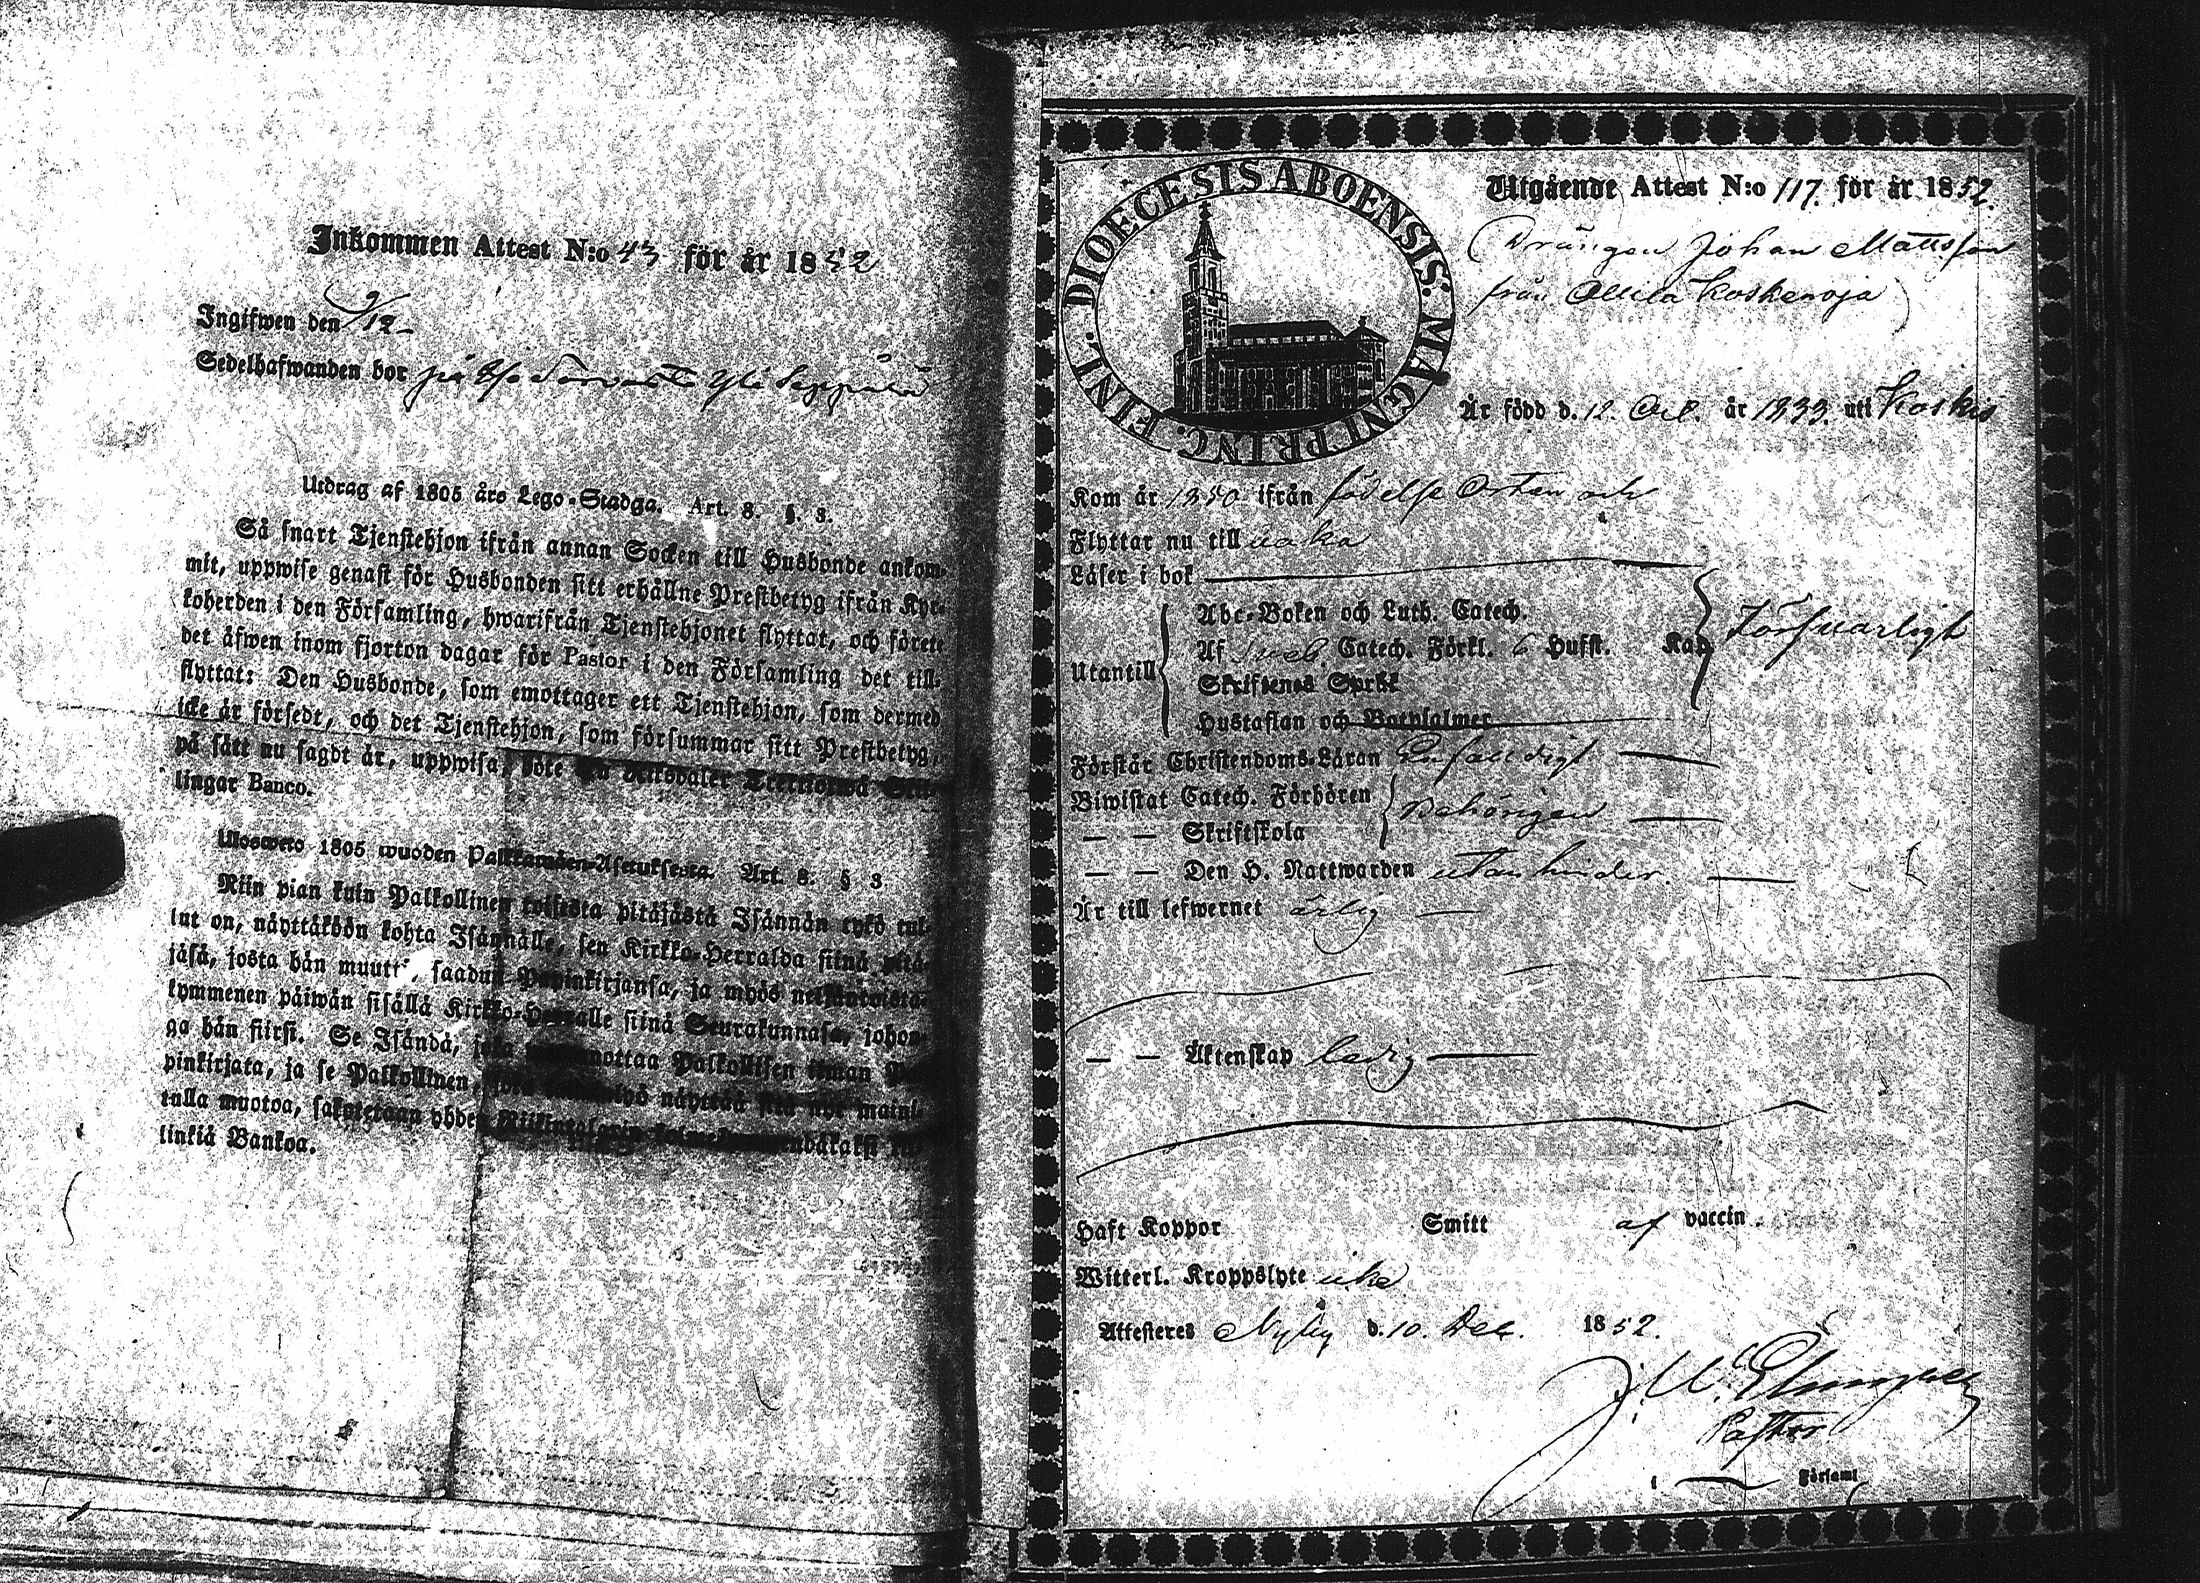 Inkommen Attest N:o 43 för år 1852
Ingifwen den 9/12
Sedelhafwanden bor på
Utdrag af 1805 års Lego-Stadga. Art. 8. §. 3.
Så snart Tjenstehjon ifrån annan Socken till Husbonde ankom-
mit, uppwise genast för Husbonden sitt erhållne Prestbetyg ifrån Kyr-
koherden i den Församling, hwarifrån Tjenstehjonet flyttat, och förete
det äfwen inom fjorton dagar för Pastor i den Församling det till-
flyttat: Den Husbonde, som emottager ett Tjenstehjon, som dermed
icke är försedt, och det Tjenstehjon, som försummar sitt Prestbetyg,
på sätt nu sagdt är, uppwisa, böte Riksdaler Trettiotwå Skil-
lingar Banco.
Ulosweto 1805 wuoden Palkkawäen-Asetuksesta. Art. 8. § 3
Niin pian kuin Palkollinen toisesta pitäjästä Isännän tykö tul-
lut on, näyttäköön kohta Isännälle, sen Kirkko-Herralda siinä pitä-
jäsä, josta hän muutti, saadun Papinkirjansa, ja myös neljäntoista-
kymmenen päiwän sisällä Kirkko-Herralle siinä Seurakunnasa, johon-
ga hän siirsi. Se Isändä, joka ottaa Palkollisen ilman Pa-
pinkirjata, ja se Palkollinen, näyttää sitä nyt maini-
tulla muotoa, sakotetaan yhden Riikintalarin kolmekymmendäkaksi kil-
linkiä Bankoa.
DIOECESIS ABOENSIS. MAGNI PRINC. FINL.
Utgående Attest N:o 117. för år 1852.
Drängen Johan Mattsson
från Ollila Koskenoja
Är född d. 12. Oct. år 1833. uti Koskis
Kom år 1850 ifrån födelse Orten och
Flyttar nu till
Läser i bok
Utantill
Abc-Boken och Luth. Catech.
Af Sveb. Catech. Förkl. 6 Hufst. Kap.
Skriftenes Språk
Hustaflan och Botpsalmer
Försvarligt
Förstår Christendoms-Läran Enfaldigt
Biwistat Catech. Förhören
— — Skriftskola
Behörigen
— — Den H. Nattwarden utan hinder.
Är till lefwernet ärlig
— — Äktenskap ledig
Haft Koppor Smitt af vaccin.
Witterl. Kroppslyte icke
Attesteres Nyby d. 10. Dec. 1852.
Pastor
i Församl.